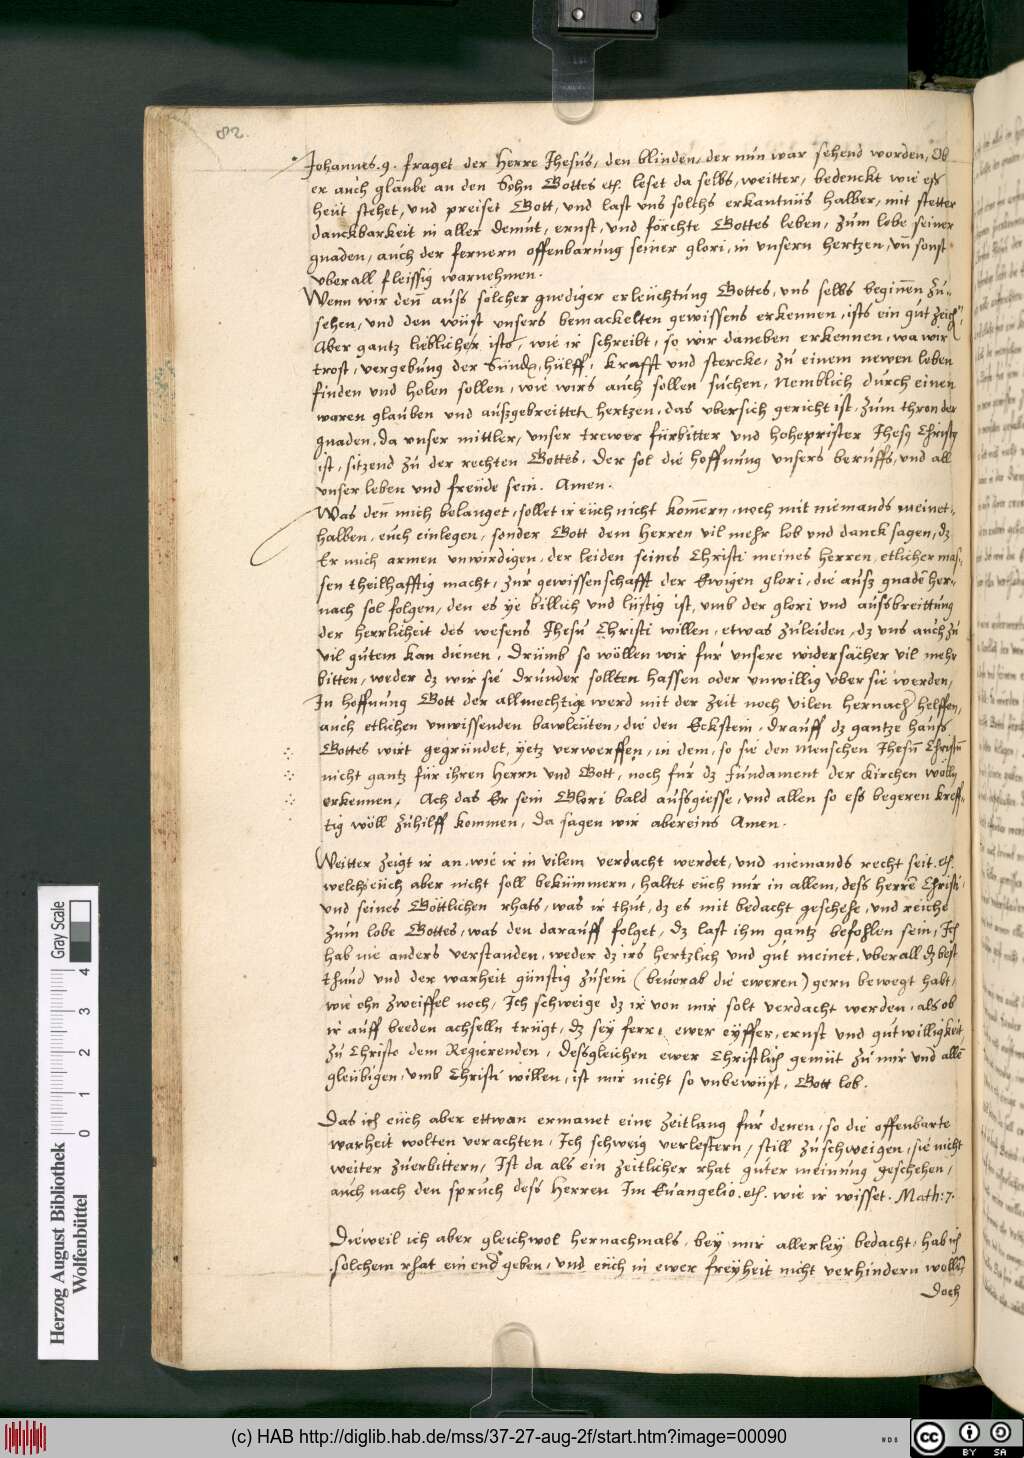 82.
Johannes .9. fraget der Herre Jhesus, den blinden, der nun war sehend worden, Ob
er auch glaube an den Sohn Gottes etc. leset da selbs, weitter, bedenckt wie es
heut stehet, und preiset Gott, und last uns solchs erkantnus halber, mit stetter
danckbarkeit in aller demut, ernst, und förchte Gottes leben, zum lobe seiner
gnaden, auch der fernern offenbarung seiner glori, in unsern hertzen, un sonst
uberall fleissig warnehmen.
Wenn wir den auss solcher gnediger erleuchtung Gottes, uns selbs beginnen zu-
sehen, und den wust unsers bemackelten gewissens erkennen, ists ein gut zeich
Aber gantz lieblicher ists, wie ir schreibt, so wir daneben erkennen, wa wir
trost, vergebung der Sünden, hülff, krafft und stercke, zu einem newen leben
finden und holen sollen, wie wirs auch sollen suchen, Nemblich durch einen
waren glauben und außgebreitteten hertzen, das ubersich gericht ist, zum thron der
gnaden, da unser mittler, unser trewer fürbitter und hohepriester Jhesus Christus
ist, sitzend zu der rechten Gottes. Der sol die hoffnung unsers beruffs, und all
unser leben und freude sein. Amen.
Was den mich belanget, sollet ir euch nicht komern, noch mit niemands meinet-
halben, euch einlegen, sonder Gott dem Herren vil mehr lob und danck sagen, dz
Er mich armen unwirdigen, der leiden seines Christi meines herren, etlicher mas-
sen theilhafftig macht, zur gewissenschafft der Ewigen glori, die auß gnade her-
nach sol folgen, den es ye billich und lustig ist, umb der glori und aussbreittung
der herrlicheit des wesens Jhesu Christi willen, etwas zuleiden, dz uns auch zu
vil gutem kan dienen, Drumb so wöllen wir fur unsere widersächer vil mehr
bitten, weder dz wir sie drunder sollten hassen oder unwillig uber sie werden,
In hoffnung Gott der allmechtige werd mit der zeit noch vilen hernach helffen,
auch etlichen unwissenden bawleuten, die den Eckstein, drauff dz gantze hauss
Gottes wirt gegründet, yetz verwerffen, in dem, so sie den Menschen Jhesum Christum
nicht gantz für ihren Herrn und Gott, noch fur dz fundament der Kirchen wölln
erkennen, Ach das Er sein Glori bald aussgiesse, und allen so ess begeren kreff-
tig wöll zuhilff kommen, Da sagen wir abereins Amen.
Weitter zeigt ir an, wie ir in vilem verdacht werdet, und niemands recht seit. etc.
welchs euch aber nicht soll bekümmern, haltet euch nur in allem, dess herre Christi
und seines Göttlichen rhats, was ir thut, dz es mit bedacht geschehe, und reiche
zum lobe Gottes, was den darauff folget, dz last ihm gantz befohlen sein, Ich
hab nie anders verstanden, weder dz irs hertzlich und gut meinet, uberall dz best
thund und der warheit günstig zusein (beuorab die eweren) gern bewegt habt,
wie ohn zweiffel noch, Ich schweige dz ir von mir solt verdacht werden, als ob
ir auff beeden achselln trugt, dz sey ferr, ewer eyffer, ernst und gutwilligkeit
zu Christo dem Regierenden, Dessgleichen ewer Christlich gemüt zu mir und alle
gleubigen, umb Christi willen, ist mir nicht so unbewust, Gott lob.
Das ich euch aber ettwan ermanet eine zeitlang fur denen, so die offenbarte
warheit wolten verachten, Ich schweig verlestern, still zuschweigen, sie nicht
weiter zuerbittern, Ist da als ein zeitlicher rhat guter meinung geschehen,
auch nach den spruch dess Herren Im Euangelio. etc. wie ir wisset. Math: 7.
Dieweil ich aber gleichwol hernachmals, bey mir allerley bedacht, hab ich
solchem rhat ein end geben, und euch in ewer freyheit nicht verhindern wollen
Doch
Herzog August Bibliothek
Wolfenbüttel
0 1 2 3 4
Gray Scale
(c) HAB http://diglib.hab.de/mss/37-27-aug-2f/start.htm?image=00090
WDB
cc BY SA